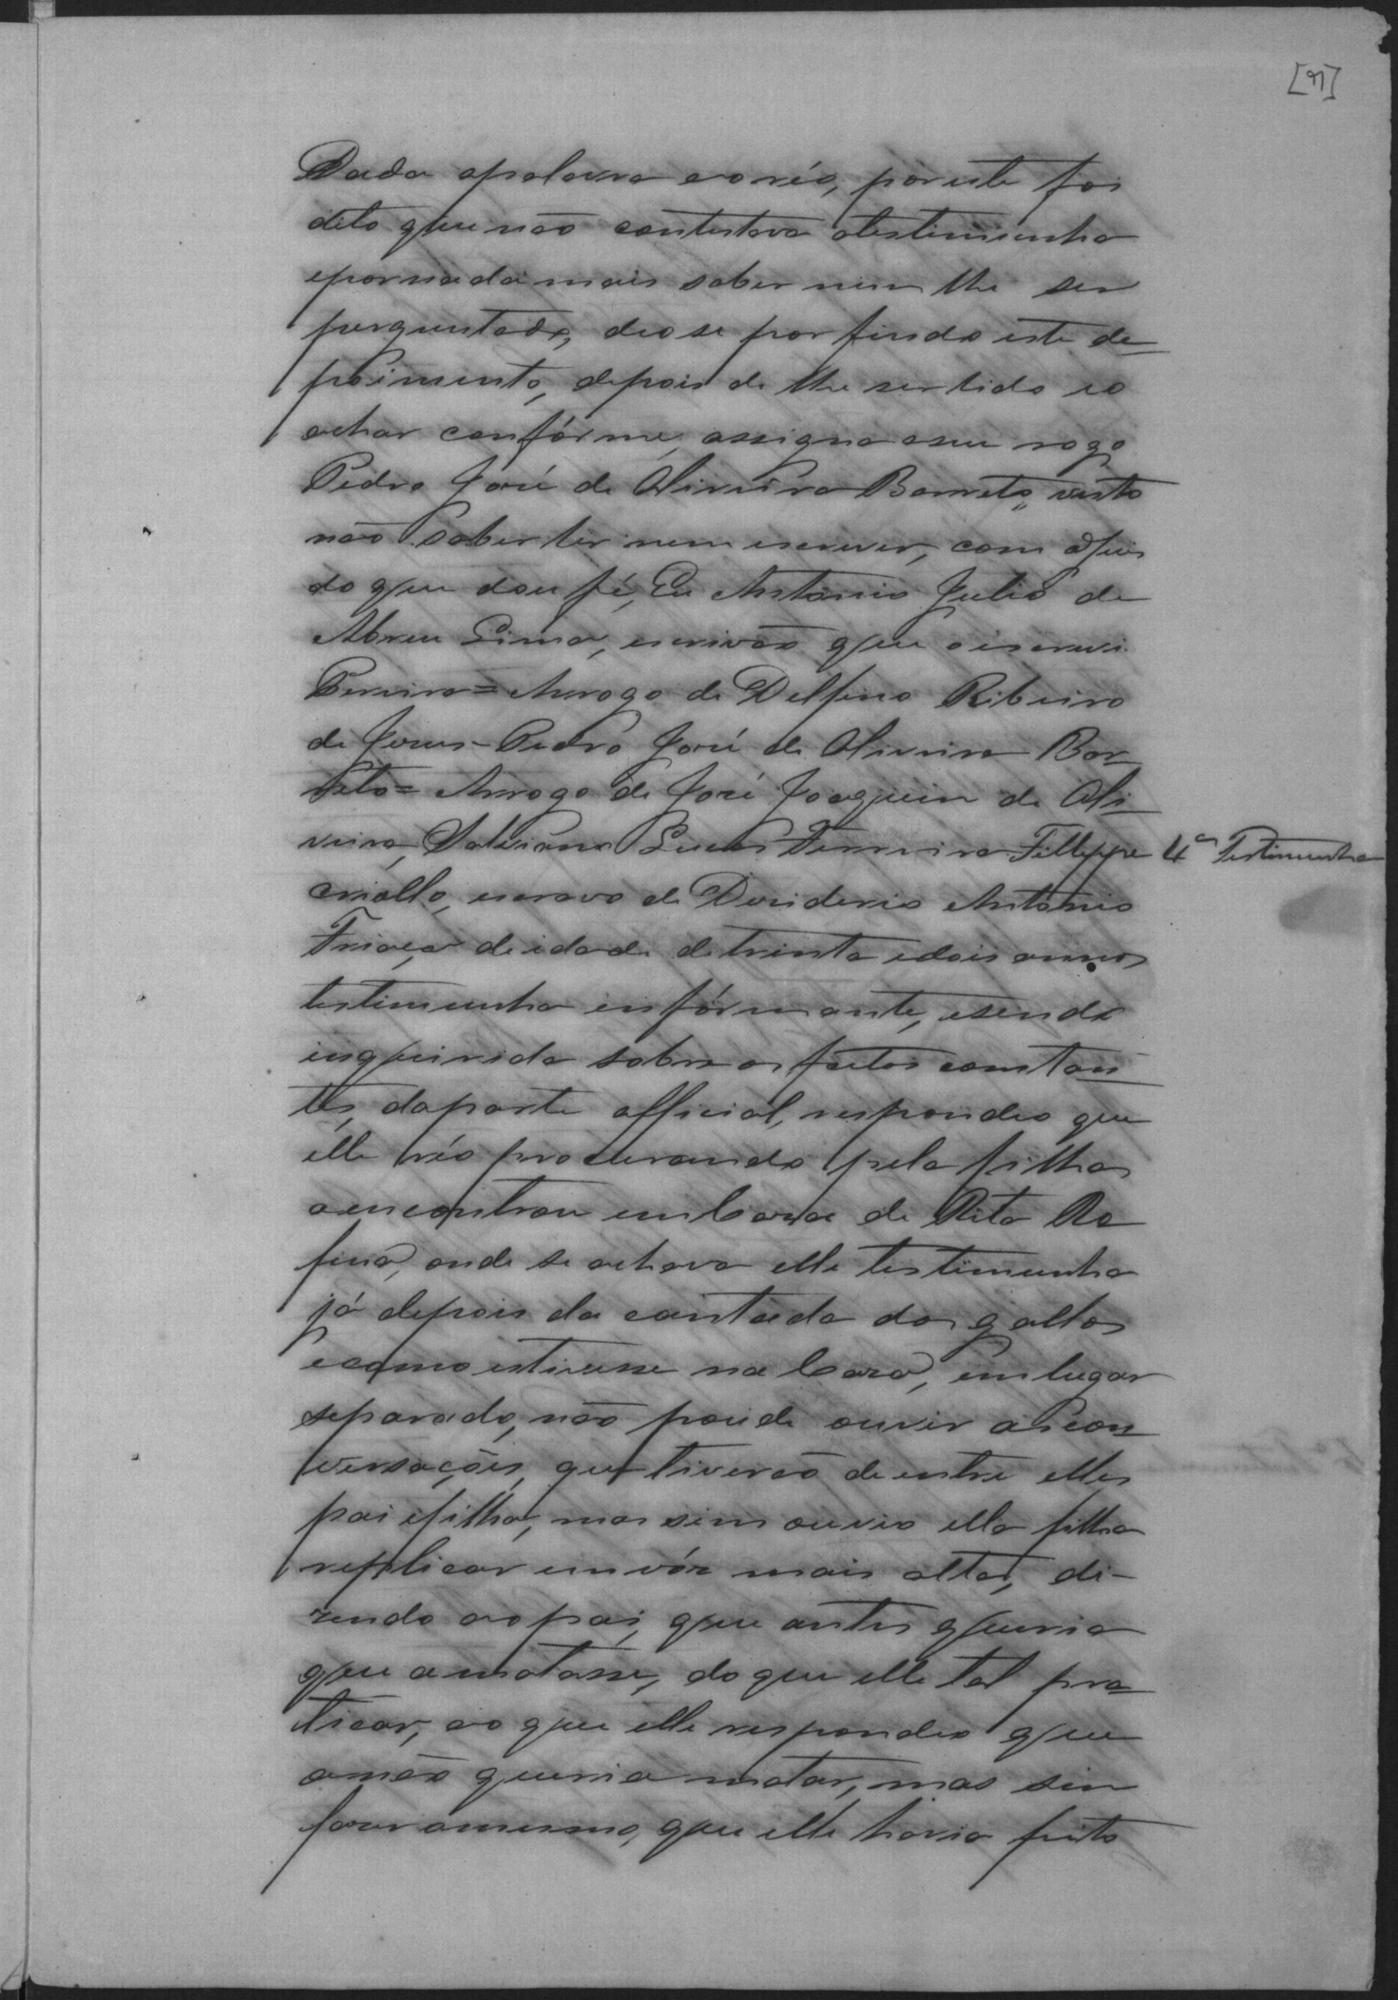 [71]
Dada apalavra aoréo, por este foi
dito que não contestava atestimunha
epornada mais saber nem lhe ser
perguntado, deose por findo este de=
poimento, depois de lhe ser lido eo
achar confórme, assigna aseu rogo
Pedro José de Oliveira Barreto, visto
não saber ler nem escrever, com oJuis
do que dou fé, Eu Antonio Julio de
Abreu Lima, escrivão que o escrevi
Pereira= Arrogo de Delfino Ribeiro
de Jesus- Pedro José de Oliveira Bar
reto= Arrogo de José Joaquim de Oli=
veira, Saleiano Lucas Ferreira Fellippe
4ª Testimunha
criollo, escravo de Desiderio Antonio
França, de idade de trinta edois annos
testimunha infórmante, esendo
inqueirida sobre os factos constan=
tes, daparte official, respondeo que
elle réo procurando pela filha
aencontrou em Casa de Rita Ra
fina, onde se achava elle testimunha
já depois da cantada dos gallos
ecomo estivesse na Casa, em lugar
separado, não poude ouvir as con=
versações, que tiverão de entre elles
pai efilha, mas sim ouvio ella filha
replicar em vóz mais alta, di-
zendo ao pai, que antes queria
que amatasse, do que elle tal pra=
ticar, ao que elle respondeo que
anão queria matar, mas sim
fazer omesmo, que elle havia feito